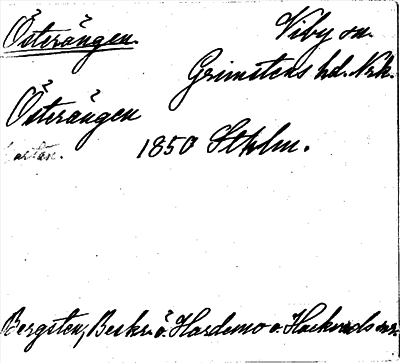 Österängen.
Viby sn.
Grimstens hd. Nrk.
Österängen
1850 Sthlm.
Bergsten, Beskr. ö. Hardemo o. Hackvads snr.